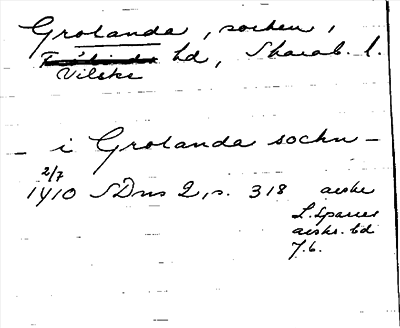 Grolanda, socken,
hd, Skarab. l.
Vilske
– i Grolanda sockn –
2/7
1410 SDns 2, s. 318 avskr
L. Sparres
avskr. bd
7.6.